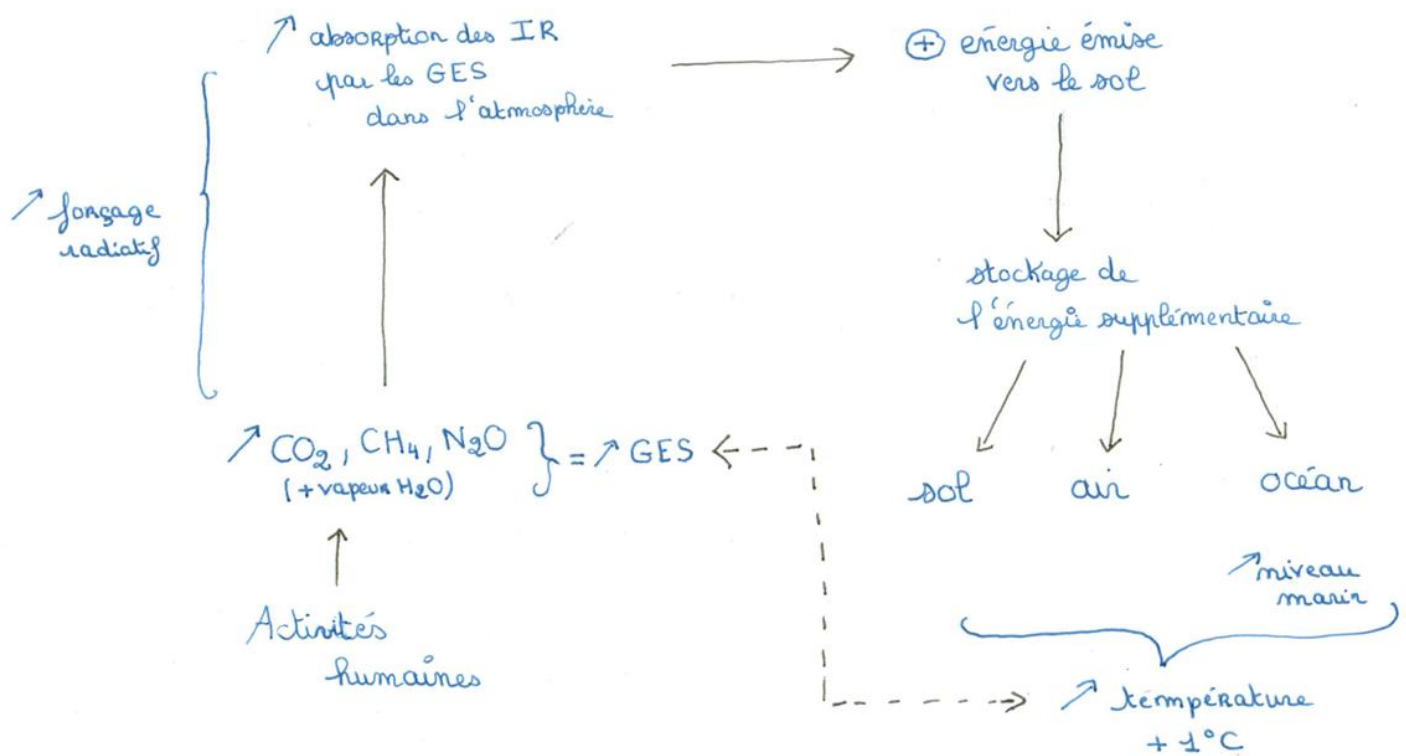 ↗ absorption des IR
par les GES
dans l'atmosphère
⊕ énergie émise
vers le sol
↗ forçage
radiatif
stockage de
l'énergie supplémentaire
↗ CO2, CH4, N2O } = ↗ GES
(+ vapeur H2O)
sol air océan
↗ niveau
marin
Activités
humaines
↗ température
+ 1°C